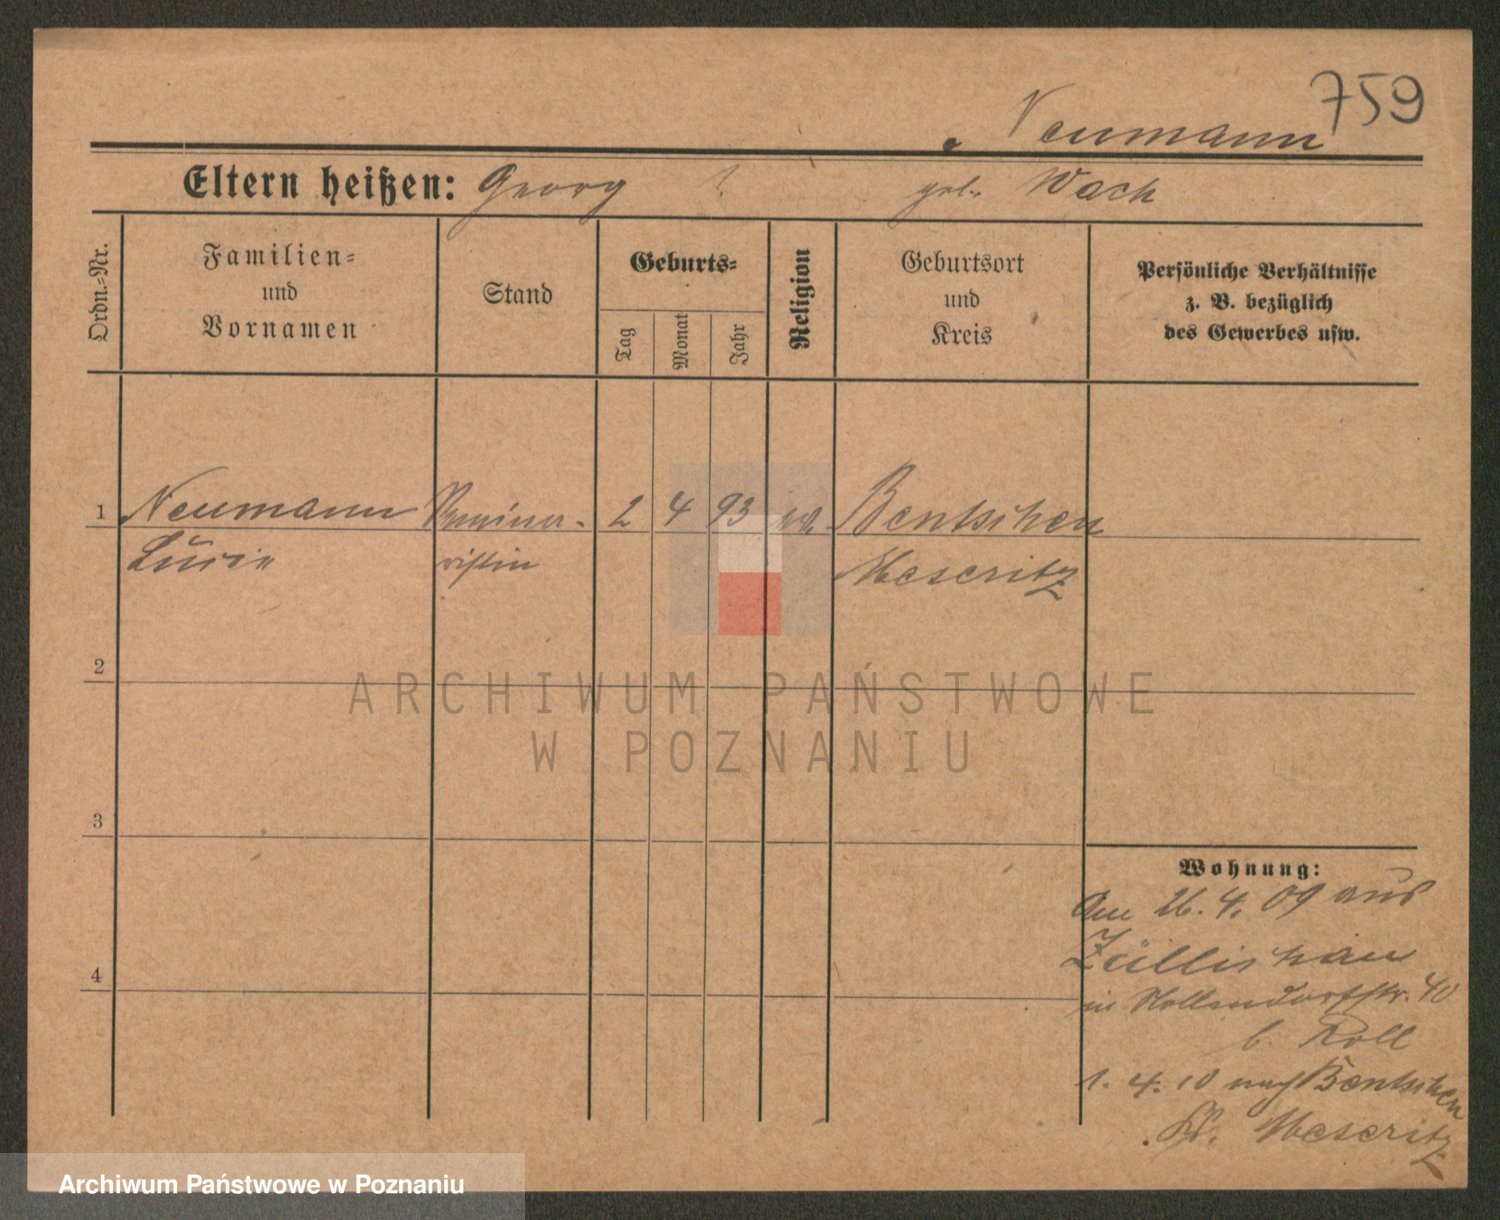 759
Neumann
Eltern heißen: Georg ? geb. Wach
Ordn.-Nr.
Familien-
und
Vornamen
Stand
Geburts-
Tag
Monat
Jahr
Religion
Geburtsort
und
Kreis
Persönliche Verhältnisse
z. B. bezüglich
des Gewerbes usw.
1 Neumann Seminar- 2 4 93 Bentschen
ristin Meseritz
2
3
4
ARCHIWUM PAŃSTWOWE
W POZNANIU
Wohnung:
26. 4. 09 aus
Züllichau
in Nollendorfstr. 40
b. Roll
1. 4. 10 nach Bentschen
Kr. Meseritz
Archiwum Państwowe w Poznaniu